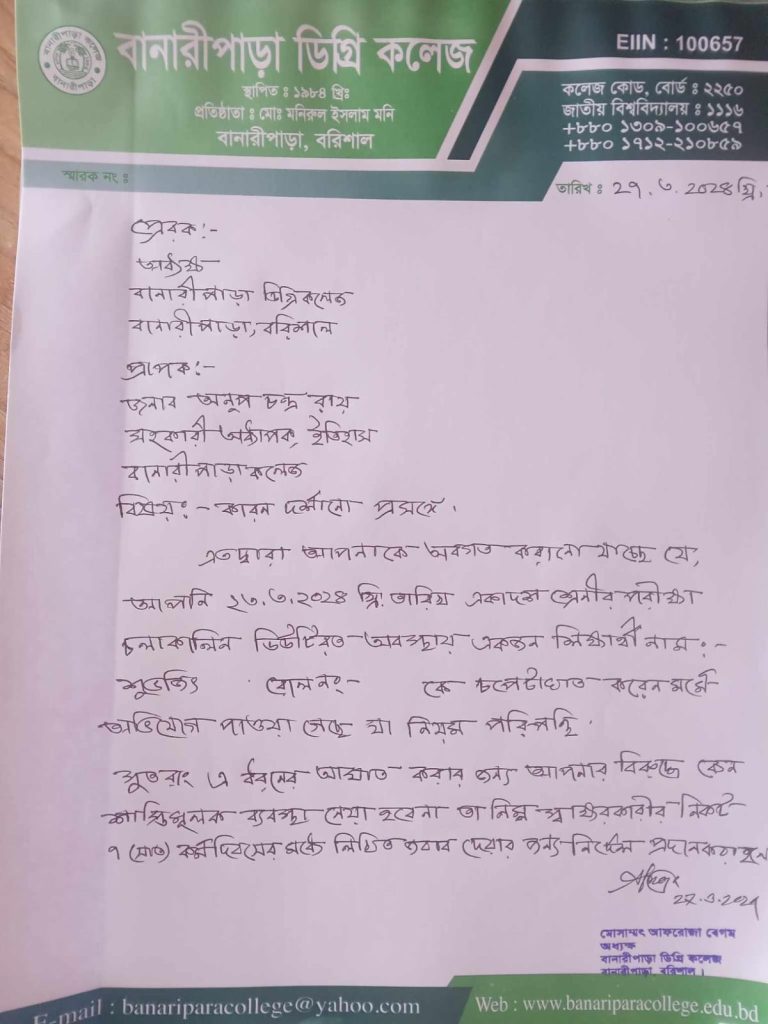 বানারীপাড়া ডিগ্রি কলেজ
স্থাপিত : ১৯৮৪ খ্রিঃ
প্রতিষ্ঠাতা : মোঃ মনিরুল ইসলাম মনি
বানারীপাড়া, বরিশাল
EIIN : 100657
কলেজ কোড, বোর্ড : ২২৫০
জাতীয় বিশ্ববিদ্যালয় : ১১১৬
+৮৮০ ১৩০৯-১০০৬৫৭
+৮৮০ ১৭১২-২১০৮৫৯
স্মারক নং :
তারিখ : ২৭. ৩. ২০২৪ খ্রি.
প্রেরক:-
অধ্যক্ষ
বানারীপাড়া ডিগ্রি কলেজ
বানারীপাড়া, বরিশাল
প্রাপক:-
জনাব অনুপ চন্দ্র রায়
সহকারী অধ্যাপক, ইতিহাস
বানারীপাড়া কলেজ
বিষয়:- কারন দর্শানো প্রসঙ্গে.
এতদ্বারা আপনাকে অবগত করানো যাচ্ছে যে,
আপনি ২৩.৩.২০২৪ খ্রি. তারিখ একাদশ শ্রেনীর পরীক্ষা
চলাকালিন ডিউটিরত অবস্থায় একজন শিক্ষার্থী নাম:-
শুভজিৎ রোল নং- কে চপেটাঘাত করেন মর্মে
অভিযোগ পাওয়া গেছে যা নিয়ম পরিপন্থি.
সুতরাং এ ধরনের আঘাত করার জন্য আপনার বিরুদ্ধে কেন
শাস্তিমূলক ব্যবস্থা নেয়া হবেনা তা নিম্ন স্বাক্ষরকারীর নিকট
৭ (সাত) কর্মদিবসের মধ্যে লিখিত জবাব দেবার জন্য নির্দেশ প্রদান করা হল
মোসাম্মৎ আফরোজা বেগম
অধ্যক্ষ
বানারীপাড়া ডিগ্রি কলেজ
বানারীপাড়া, বরিশাল।
E-mail : banariparacollege@yahoo.com
Web : www.banariparacollege.edu.bd